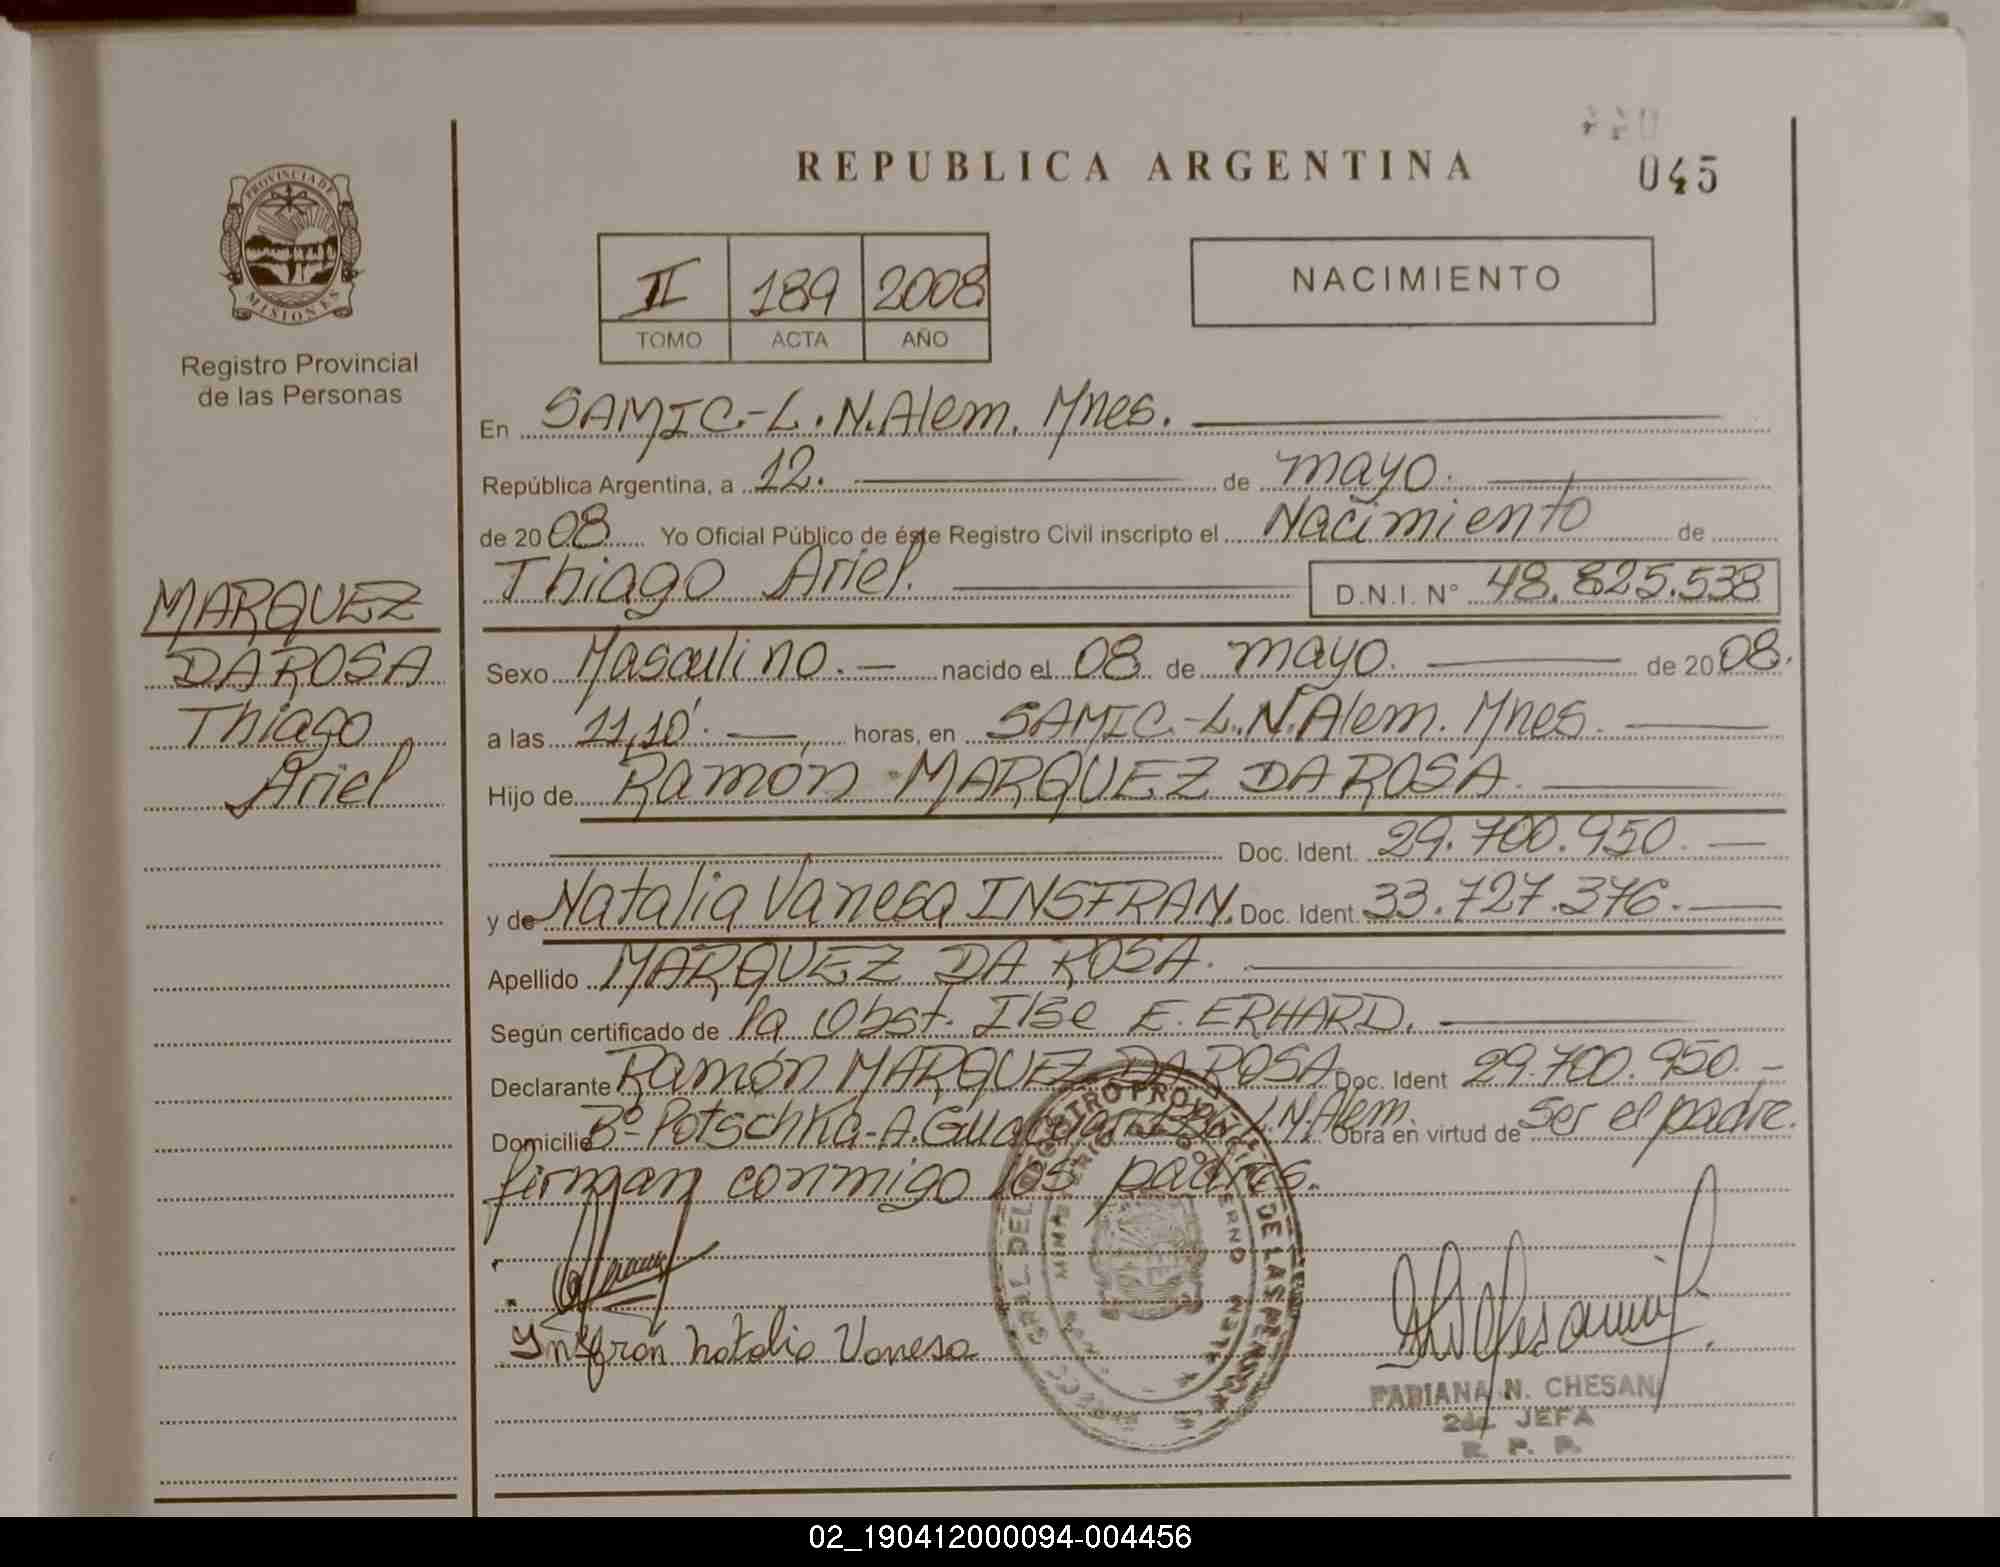 REPUBLICA ARGENTINA
045
PROVINCIA DE
MISIONES
Registro Provincial
de las Personas
II 189 2008
TOMO ACTA AÑO
NACIMIENTO
En SAMIC.-L.N.Alem. Mnes.
República Argentina, a 12. de mayo.
de 2008 Yo Oficial Público de éste Registro Civil inscripto el Nacimiento de
Thiago Ariel. D.N.I. N° 48.825.538
MARQUEZ
DA ROSA
Thiago
Ariel
Sexo Masculino. nacido el 08 de mayo. de 2008.
a las 11,10'. horas, en SAMIC.-L.N.Alem. Mnes.
Hijo de Ramón MARQUEZ DA ROSA.
Doc. Ident. 29.700.950.
y de Natalia Vanesa INSFRAN. Doc. Ident. 33.727.376.
Apellido MARQUEZ DA ROSA.
Según certificado de la Obst. Ilse E. ERHARD.
Declarante Ramón MARQUEZ DA ROSA Doc. Ident 29.700.950.
Domicilio Bº Potschka-A. L.N.Alem. Obra en virtud de ser el padre.
firman conmigo los padres.
Insfran Natalia Vanesa
FABIANA N. CHESANI
2da. JEFA
R. P. P.
02_190412000094-004456